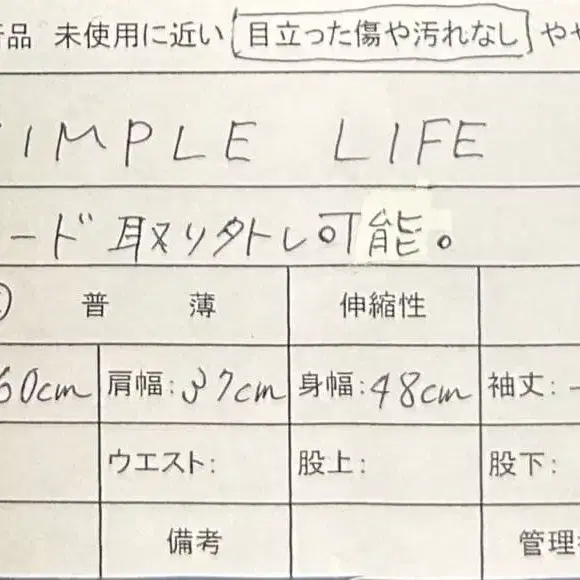 品 未使用に近い 目立った傷や汚れなし やや
IMPLE LIFE
ード 取り外し可能。
普 薄 伸縮性
60cm 肩幅:37cm 身幅:48cm 袖丈:
ウエスト: 股上: 股下:
備考 管理